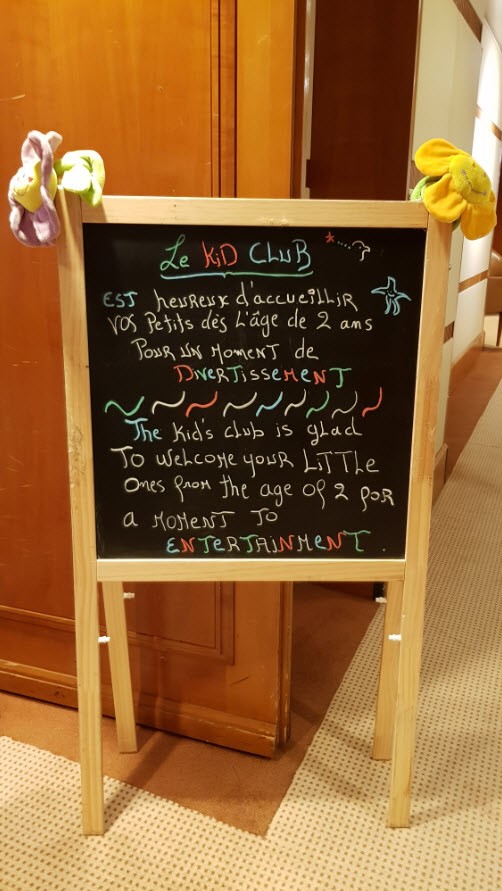 Le KiD CLUB
EST heureux d'accueillir
vos Petits dès L'âge de 2 ans
Pour un Moment de
DiverTisseMenT
The Kid's club is glad
To welcome your LiTTLe
Ones from the age of 2 for
a MOMENT TO
ENTeRTAiNMeNT.